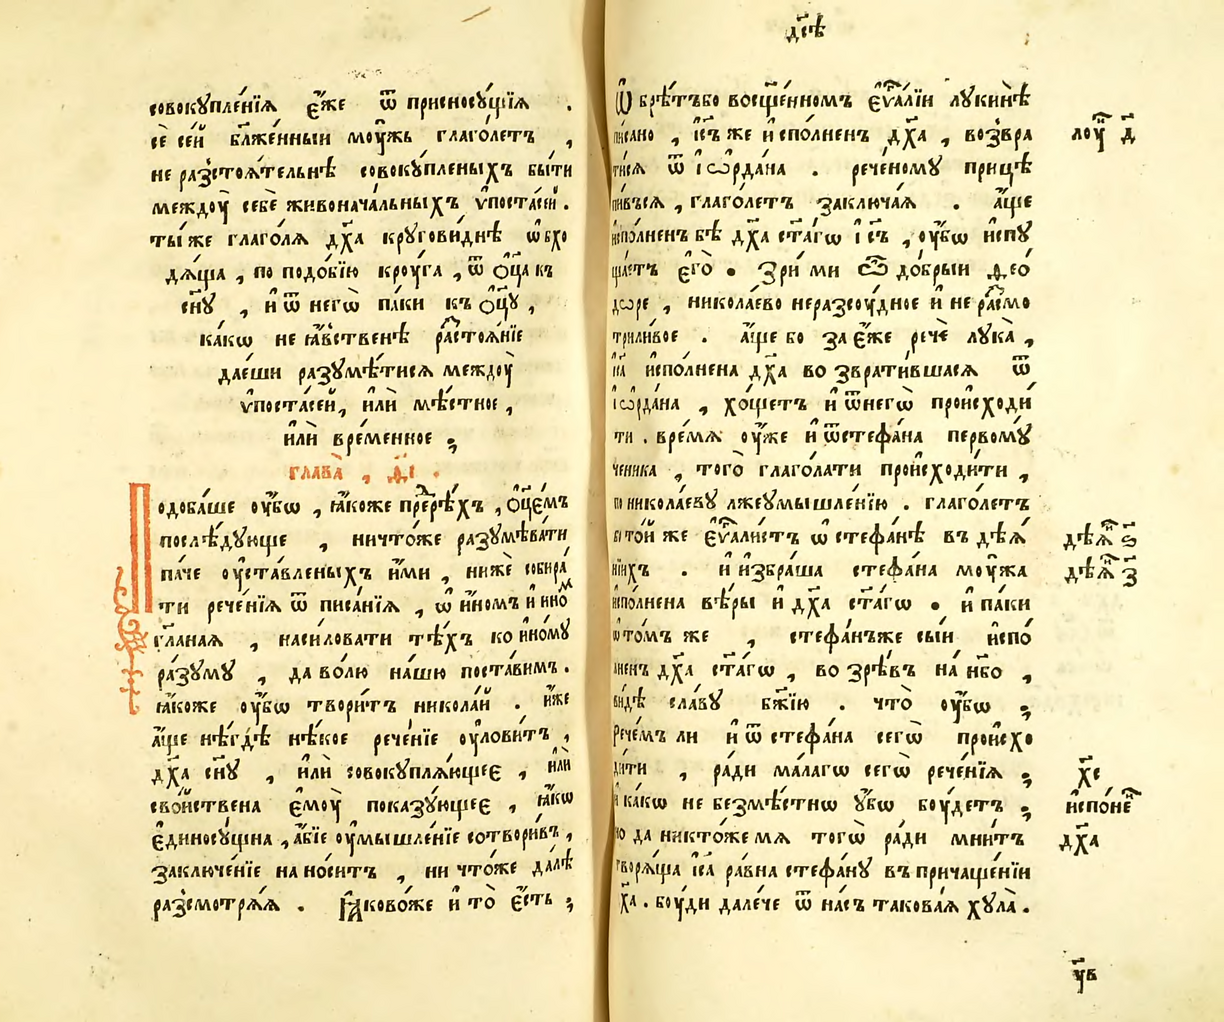 совокꙋпле́нїѧ є҆́же ѿ присносꙋ́щїѧ .
сѐ се́й бл҃же́нныи моу́жь глаго́летъ ,
не ра́зстоѧ́тельнѣ совокꙋ́пленыхъ бы́ти
междоу̀ себѐ живонача́льныхъ ѵ҆поста́сей .
ты́ же глаго́лѧ дх҃а крꙋгови́днѣ ѡ҆бхо
дѧ́ща , по подо́бїю кро́уга , ѿ ѻ҆ц҃а къ
сн҃ꙋ , и҆ ѿ негѡ̀ па́ки къ ѻ҆ц҃ꙋ ,
ка́кѡ не ꙗ҆́вственѣ растоѧ́нїе
дае́ши разꙋмѣ́тисѧ междоу̀
ѵ҆поста́сей, и҆лѝ мѣ́стное ,
и҆лѝ вре́менное ;
глава̀ , д҃і .
Подоба́ше оу҆́бѡ , ꙗ҆́коже пре́рѣхъ , ѻ҆ц҃е́мъ
послѣ́дꙋюще , ничто́же разꙋмѣ́вати
па́че оу҆ста́вленыхъ и҆́ми , ниже собира́
ти рече́нїѧ ѿ писа́нїѧ , ѡ҆ и҆́номъ и҆ ино́м
гл҃анаѧ , наси́ловати тѣ́хъ ко и҆но́мꙋ
ра́зꙋмꙋ , да во́лю на́шю поста́вимъ .
ꙗ҆́коже оу҆́бѡ твори́тъ никола́й . и҆́же
а҆́ще нѣ́гдѣ нѣ́кое рече́нїе оу҆лови́тъ ,
дх҃а сн҃ꙋ , и҆лѝ совокꙋплѧ́ющеє , и҆лѝ
сво́йствена є҆моу̀ пока́зꙋющеє , ꙗ҆́кѡ
є҆диносꙋ́щна , а҆́бїе оу҆мышле́нїе сотвори́въ ,
заключе́нїе на но́ситъ , ни что́же да́лѣ
разсмотрѧ́ѧ . Ꙗ҆ково́же и҆ то̀ є҆́сть ;
дс҃ѣ
Ѡ҆брѣ́тъбо восщ҃е́нномъ є҆ѵⷢ҇а́лїи лꙋкинѣ
писано , і҆с҃ъ же и҆спо́лненъ дх҃а , возвра
ти́сѧ ѿ і҆ѡрда́на . рече́номꙋ прицѣ
пи́въсѧ , глаго́летъ заключа́ѧ . а҆́ще
и҆спо́лненъ бѣ̀ дх҃а ст҃а́гѡ і҆с҃ъ , оу҆́бѡ и҆спꙋ
ща́етъ є҆го̀ . Зри́ ми ѽ до́брыи ѳео́
дѡре , никола́ево неразсоу́дное и҆ не расмо
три́ливое . а҆́ще бо за є҆́же речѐ лꙋка̀ ,
і҆с҃а и҆спо́лнена дх҃а во звратившасѧ ѿ
і҆ѡрда́на , хо́щетъ и҆ ѿнегѡ̀ происходи
ти . времѧ̀ оу҆́же и҆ ѿстефа́на первомꙋ́
ченика , того̀ глаго́лати происходи́ти ,
по никола́евꙋ лжеꙋмышле́нїю . глаго́летъ
бо то́й же є҆ѵⷢ҇али́стъ ѡ҆ стефа́нѣ въ дѣѧ́
нїихъ . и҆ и҆збра́ша стефа́на моу́жа
и҆спо́лнена вѣ́ры и҆ дх҃а ст҃а́гѡ . и҆ па́ки
ѡ҆ то́мъ же , стефа́нъже сы́и и҆спо́
лненъ дх҃а ст҃а́гѡ , во зрѣ́въ на́ нб҃о ,
ви́дѣ сла́вꙋ бж҃їю . что̀ оу҆́бѡ ;
Рече́мъ ли и҆ ѿ стефа́на сегѡ̀ происхо
ди́ти , ра́ди ма́лагѡ сегѡ̀ рече́нїѧ ;
и҆ ка́кѡ не безмѣ́стнѡ ꙋ҆́бѡ боу́детъ ;
но да никто́же мѧ тогѡ̀ ра́ди мни́тъ
творѧ́ща і҆с҃а ра́вна стефа́нꙋ въ прича́щенїи
дх҃а . бо́уди дале́че ѿ на́съ такова́ѧ хꙋла̀ .
лоуⷦ҇ д҃
дѣѧⷩ҇ ѕ҃
дѣѧⷩ҇ з҃
хс҃
и҆спо́неⷩ҇
дх҃а
ув҃